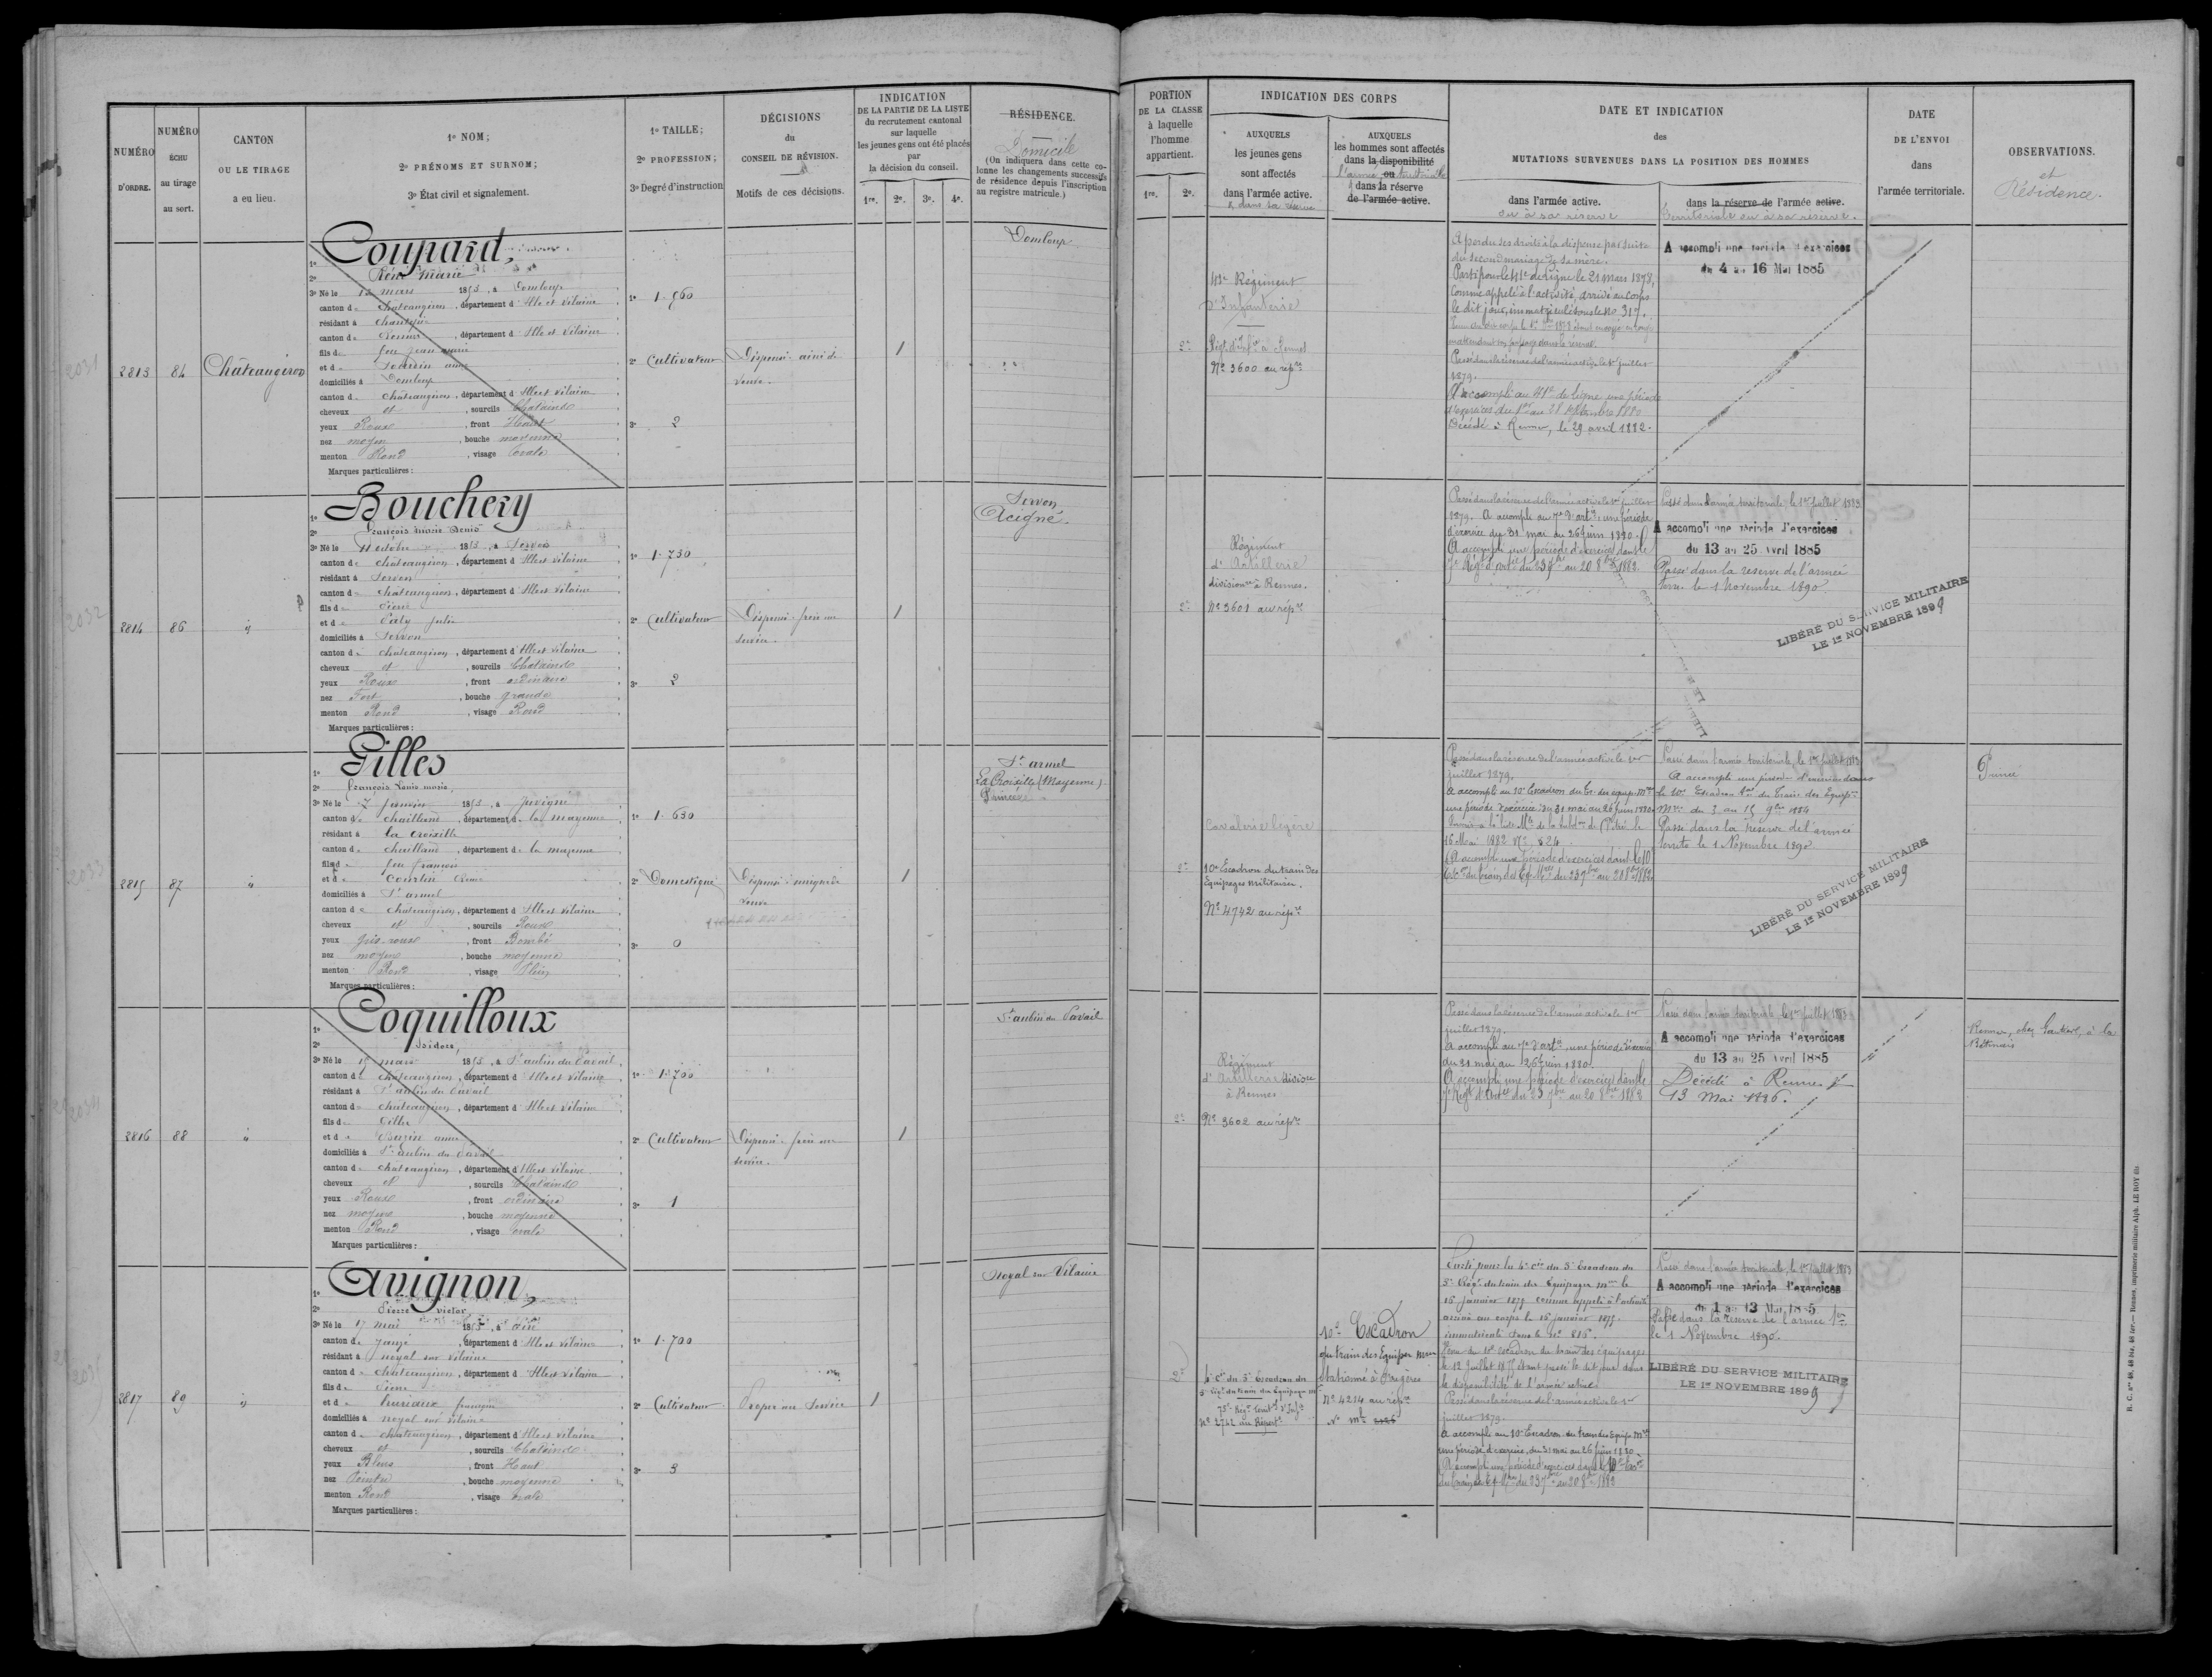 NUMÉRO
D'ORDRE.
NUMÉRO
ÉCHU
au tirage
au sort.
CANTON
OU LE TIRAGE
a eu lieu.
1º NOM;
2º PRÉNOMS ET SURNOM;
3º État civil et signalement.
1º TAILLE;
2º PROFESSION;
3º Degré d'instruction
DÉCISIONS
du
CONSEIL DE RÉVISION.
Motifs de ces décisions.
INDICATION
DE LA PARTIE DE LA LISTE
du recrutement cantonal
sur laquelle
les jeunes gens ont été placés
par
la décision du conseil.
1re. 2e. 3e. 4e.
RÉSIDENCE.
Domicile
(On indiquera dans cette co-
lonne les changements successifs
de résidence depuis l'inscription
au registre matricule.)
PORTION
DE LA CLASSE
à laquelle
l'homme
appartient.
1re. 2e.
INDICATION DES CORPS
AUXQUELS
les jeunes gens
sont affectés
dans l'armée active.
& dans sa réserve
AUXQUELS
les hommes sont affectés
dans la disponibilité
ou
l'armée territoriale
& dans la réserve
de l'armée active.
DATE ET INDICATION
des
MUTATIONS SURVENUES DANS LA POSITION DES HOMMES
dans l'armée active.
ou à sa réserve
dans la réserve de l'armée active.
territoriale ou à sa réserve.
DATE
DE L'ENVOI
dans
l'armée territoriale.
OBSERVATIONS.
et
Résidence.
2031
2813 84 Châteaugiron
Coupard,
1º
2º René Marie
3º Né le 13 mars 1853, à Domloup
canton de Châteaugiron, département d Ille et Vilaine
résidant à Chantepie
canton de Rennes, département d Ille et Vilaine
fils de feu Jean Marie
et de anne
domiciliés à Domloup
canton de Châteaugiron, département d Ille et Vilaine
cheveux et, sourcils Chatains
yeux Roux, front Haut
nez moyen, bouche moyenne
menton Rond, visage ovale
Marques particulières :
1º 1.560
2º Cultivateur
3º 2
Dispensé. ainé de
veuve.
1
Domloup
2e
41e Régiment
d'Infanterie
Régt d'Infie à Rennes
Nº 3600 au répre
A perdu ses droits à la dispense par suite
du second mariage de sa mère.
Parti pour le 41e de ligne le 21 mars 1878,
Comme appelé à l'activité, arrivé au corps
le dit jour, immatriculé sous le No 317.
en attendant son passage dans la réserve.
Passé dans la réserve de l'armée active le 1er juillet
1879.
A accompli au 41e de ligne une période
d'exercices du 1er au 28 septembre 1880
Décédé à Rennes, le 29 avril 1882.
A accompli une période d'exercices
du 4 au 16 Mai 1885
2032
2814 86 "
Bouchery
1º
2º François Marie Denis
3º Né le 11 octobre 1853, à Servon
canton de Châteaugiron, département d Ille et Vilaine
résidant à Servon
canton de Châteaugiron, département d Ille et Vilaine
fils de Pierre
et de Paty Julie
domiciliés à Servon
canton de Châteaugiron, département d Ille et Vilaine
cheveux et, sourcils Chatains
yeux Roux, front ordinaire
nez Fort, bouche grande
menton Rond, visage Rond
Marques particulières :
1º 1.730
2º Cultivateur
3º 2
Dispensé. frère au
service.
1
Servon
Acigné.
2e
Régiment
d'Artillerie
divisionre à Rennes.
Nº 3601 au répre
Passé dans la réserve de l'armée active le 1er juillet
1879. A accompli au 7e d'artie une période
d'exercice du 31 mai au 26 juin 1880.
A accompli une période d'exercices dans le
7e Régt d'artie du 23 7bre au 20 8bre 1882.
Passé dans l'armée territoriale, le 1er juillet 1883
A accompli une période d'exercices
du 13 au 25 Avril 1885
Passé dans la réserve de l'armée
Terr. le 1 Novembre 1890.
LIBÉRÉ DU SERVICE MILITAIRE
LE 1er NOVEMBRE 1899
2033
2815 87 "
Gilles
1º
2º François Louis Marie,
3º Né le 7 Janvier 1853, à Juvigné
canton de Chailland, département de la mayenne
résidant à la Croixille
canton de Chailland, département de la mayenne
fils de feu François
et de Courtin
domiciliés à St armel
canton de Châteaugiron, département d Ille et Vilaine
cheveux et, sourcils Roux
yeux gris-roux, front Bombé
nez moyen, bouche moyenne
menton Rond, visage Plein
Marques particulières :
1º 1.630
2º Domestique
3º 0
Dispensé. unique de
veuve
1
St armel
La Croixille (Mayenne)
Princé
2e
Cavalerie légère
10e Escadron du train des
Equipages militaires.
Nº 4742 au répre
Passé dans la réserve de l'armée active le 1er
juillet 1879.
A accompli au 10e Escadron du Tr. des équip. mres
une période d'exercice du 31 mai au 26 juin 1880.
16 Mai 1882 Nº 624
A accompli une période d'exercices dans le 10e
Esc. du train des Eq. Mres du 23 7bre au 20 8bre 1882
Passé dans l'armée territoriale, le 1er juillet 1883
A accompli une période d'exercices dans
le 10e Escadron du Train des Equip.
Mres du 3 au 15 9bre 1884
Passé dans la réserve de l'armée
territe le 1 Novembre 1890
LIBÉRÉ DU SERVICE MILITAIRE
LE 1er NOVEMBRE 1899
Princé
2034
2816 88 "
Coquilloux
1º
2º Isidore,
3º Né le 15 mars 1853, à St aubin du Pavail
canton de Châteaugiron, département d Ille et Vilaine
résidant à St aubin du Pavail
canton de Châteaugiron, département d Ille et Vilaine
fils de Gilles
et de anne
domiciliés à St aubin du Pavail
canton de Châteaugiron, département d Ille et Vilaine
cheveux et, sourcils Chatains
yeux Roux, front ordinaire
nez moyen, bouche moyenne
menton Rond, visage ovale
Marques particulières :
1º 1.700
2º Cultivateur
3º 1
Dispensé. frère au
service.
1
St aubin du Pavail
2e
Régiment
d'Artillerie division
à Rennes
Nº 3602 au répre
Passé dans la réserve de l'armée active le 1er
juillet 1879.
A accompli au 7e d'artie, une période d'exercice
du 31 mai au 26 juin 1880.
A accompli une période d'exercices dans le
7e Régt d'artie du 23 7bre au 20 8bre 1882
Passé dans l'armée territoriale, le 1er juillet 1883
A accompli une période d'exercices
du 13 au 25 Avril 1885
Décédé à Rennes le
13 Mai 1886.
Rennes, chez Gautier, à la
2035
2817 89 "
Avignon,
1º
2º Pierre Victor,
3º Né le 17 mai 1853, à
canton de Janzé, département d Ille et Vilaine
résidant à noyal sur Vilaine
canton de Châteaugiron, département d Ille et Vilaine
fils de Pierre
et de françoise
domiciliés à noyal sur Vilaine
canton de Châteaugiron, département d Ille et Vilaine
cheveux et, sourcils Chatains
yeux Bleus, front Haut
nez Pointu, bouche moyenne
menton Rond, visage ovale
Marques particulières :
1º 1.700
2º Cultivateur
3º 3
Propre au Service
1
Noyal sur Vilaine
2e
4e Cie du 5e Escadron du
5e Régt du train des Equipages mres
75e Régt Territ. d'Infie
Nº 2742 au Répert.
10e Escadron
du train des Equipages mres
Stationné à Fougères
Nº 4214 au répre
Nº mle 2126
Parti pour la 4e Cie du 5e Escadron du
5e Régt du train des Equipages mres le
16 janvier 1875 comme appelé à l'activité
arrivé au corps le 16 janvier 1875.
immatriculé sous le nº 816.
Venu du 10e escadron du train des équipages
le 12 Juillet 1877 étant passé le dit jour dans
la disponibilité de l'armée active.
Passé dans la réserve de l'armée active le 1er
juillet 1879.
A accompli au 10e Escadron du train des Equip. Mres
une période d'exercice, du 31 mai au 26 juin 1880.
A accompli une période d'exercices dans le 10e Escon
du train des Eq. Mres du 23 7bre au 20 8bre 1882
Passé dans l'armée territoriale, le 1er juillet 1883
A accompli une période d'exercices
du 1 au 13 Mai 1885
Passé dans la réserve de l'armée Tre
le 1 Novembre 1890.
LIBÉRÉ DU SERVICE MILITAIRE
LE 1er NOVEMBRE 1899
R. C. nos 46, 48 bis, 48 ter. — Rennes, imprimerie militaire Alph. LE ROY fils